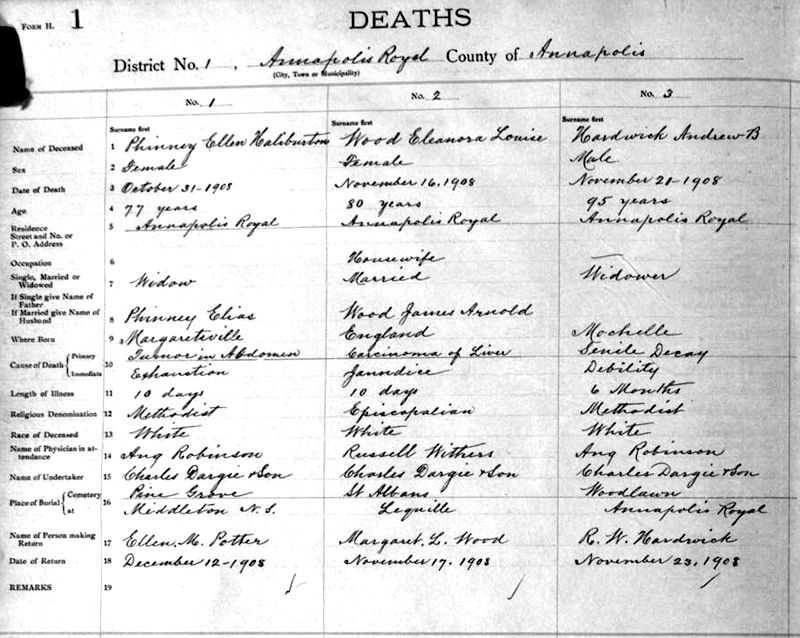 FORM H. 1
DEATHS
District No. 1, Annapolis Royal County of Annapolis
(City, Town or Municipality)
No. 1 No. 2 No. 3
Surname first Surname first Surname first
Name of Deceased 1 Phinney Ellen Haliburton Wood Eleanora Louise Hardwick Andrew B
Sex 2 Female Female Male
Date of Death 3 October 31-1908 November 16, 1908 November 21-1908
Age 4 77 years 80 years 95 years
Residence
Street and No. or
P. O. Address
5 Annapolis Royal Annapolis Royal Annapolis Royal
Occupation 6 Housewife —
Single, Married or
Widowed
7 Widow Married Widower
If Single give Name of
Father
If Married give Name of
Husband
8 Phinney Elias Wood James Arnold
Where Born 9 Margaretsville England Mochelle
Cause of Death { Primary Tumor in Abdomen Carcinoma of Liver Senile Decay
10 Immediate Exhauction Janndice Debility
Length of Illness 11 10 days 10 days 6 Months
Religious Denomination 12 Methodist Episcopalian Methodist
Race of Deceased 13 White White White
Name of Physician in at-
tendance
14 Aug Robinson Russell Withers Aug Robinson
Name of Undertaker 15 Charles Dargie & Son Charles Dargie & Son Charles Dargie & Son
Place of Burial { Cemetery Pine Grove St Albans Woodlawn
16 at Middleton N.S. Lequille Annapolis Royal
Name of Person making
Return
17 Ellen. M. Potter Margaret. L. Wood R. W. Hardwick
Date of Return 18 December 12-1908 November 17, 1908 November 23, 1908
REMARKS 19